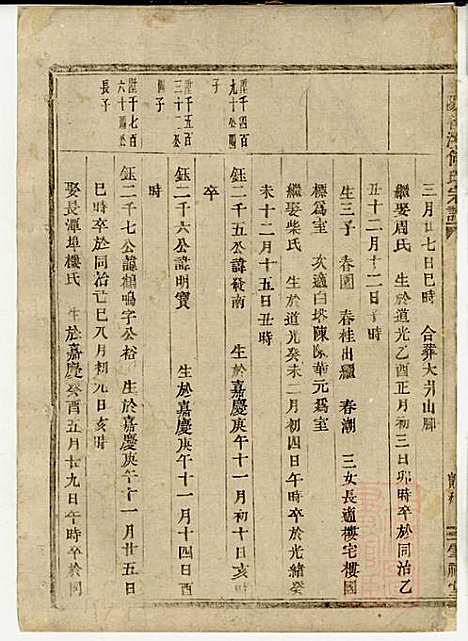 何氏宗譜
三月廿七日巳時　合葬大升山腳
繼娶周氏　生於道光乙酉正月初三日卯時卒於同治乙
丑十二月十二日子時
生三子　春園　春桂出繼　春潮　三女長適樓宅樓國
標爲室　次適白塔陳　華元爲室
繼娶柴氏　生於道光癸未二月初四日午時卒於光緒癸
未十二月十五日丑時
陞千四百
九十公
子
鈺二千五公諱發南　生於嘉慶庚午十一月初十日亥時
卒
陞千七百
三十二公
四子
鈺二千六公諱明寶　生於嘉慶庚午十一月十四日酉
時
陞千七百
六十四公
長子
鈺二千七公諱鶴鳴字公裕　生於嘉慶庚午十一月廿五日
巳時卒於同治己巳八月初九日亥時
娶長潭埠樓氏　生於嘉慶癸酉五月廿九日午時卒於同